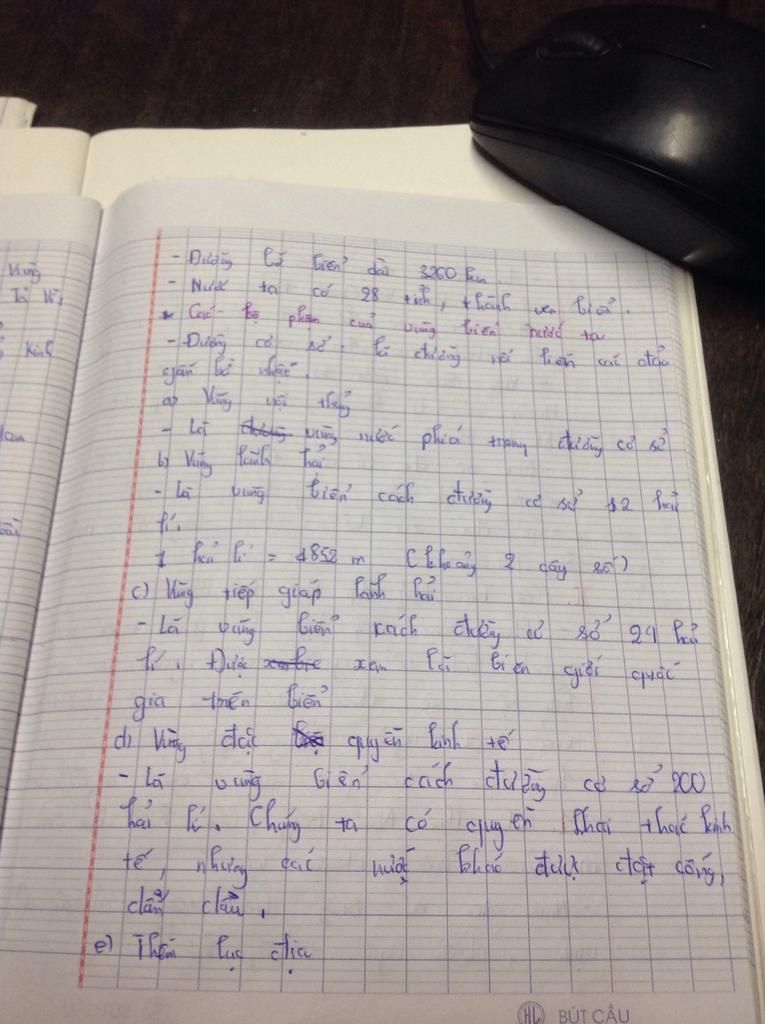 - Đường bờ biển dài 3260 km.
- Nước ta có 28 tỉnh, thành ven biển.
* Các bộ phận của vùng biển nước ta
- Đường cơ sở: là đường nối liền các đảo
gần bờ nhất.
a) Vùng nội thủy
- Là vùng nước phía trong đường cơ sở
b) Vùng lãnh hải
- Là vùng biển cách đường cơ sở 12 hải
lí.
1 hải lí = 1852 m (khoảng 2 cây số)
c) Vùng tiếp giáp lãnh hải
- Là vùng biển cách đường cơ sở 24 hải
lí. Được xem là biên giới quốc
gia trên biển
d) Vùng đặc quyền kinh tế
- Là vùng biển cách đường cơ sở 200
hải lí. Chúng ta có quyền khai thác kinh
tế, nhưng các nước khác được đặt cống,
dẫn dầu.
e) Thềm lục địa
Vùng
Kinh
HL BÚT CẦU